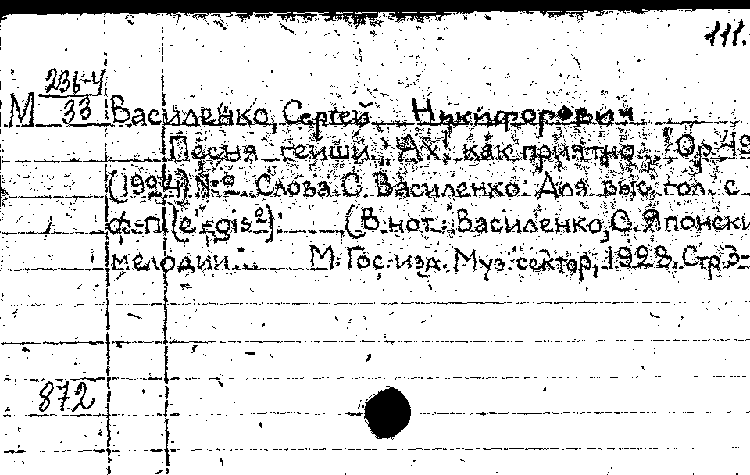 111.
М 236-4/33 Василенко, Сергей Никифорович
Песня гейши "Ах, как приятно..." Ор. 49
(1924) № 2 Слова С. Василенко. Для выс. гол. с
ф-п. (e-gis²). (В нот.: Василенко, С. Японски
мелодии... М. Гос. изд. Муз. сектор, 1928. Стр 3-
872